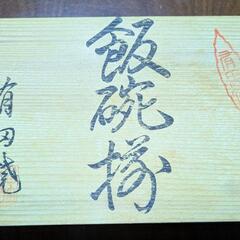 飯碗揃
有田焼